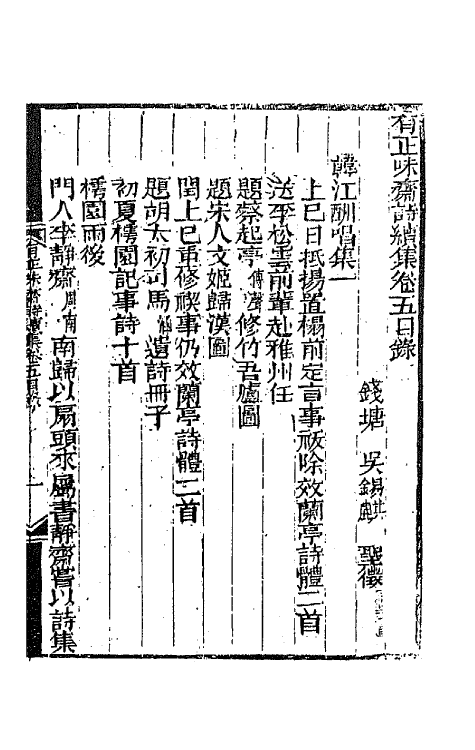 有正味齋詩續集卷五目錄
錢塘 吳錫麒 聖徵
韓江酬唱集一
上巳日抵揚置榻前定百事祓除效蘭亭詩體二首
送李松雲前輩赴雅州任
題蔡起亭修竹吾廬圖
題宋人文姬歸漢圖
閏上巳重修禊事仍效蘭亭詩體二首
題胡太初司馬遺詩冊子
初夏樗園記事詩十首
樗園雨後
門人李靜齋周南南歸以扇頭求屬書靜齋嘗以詩集